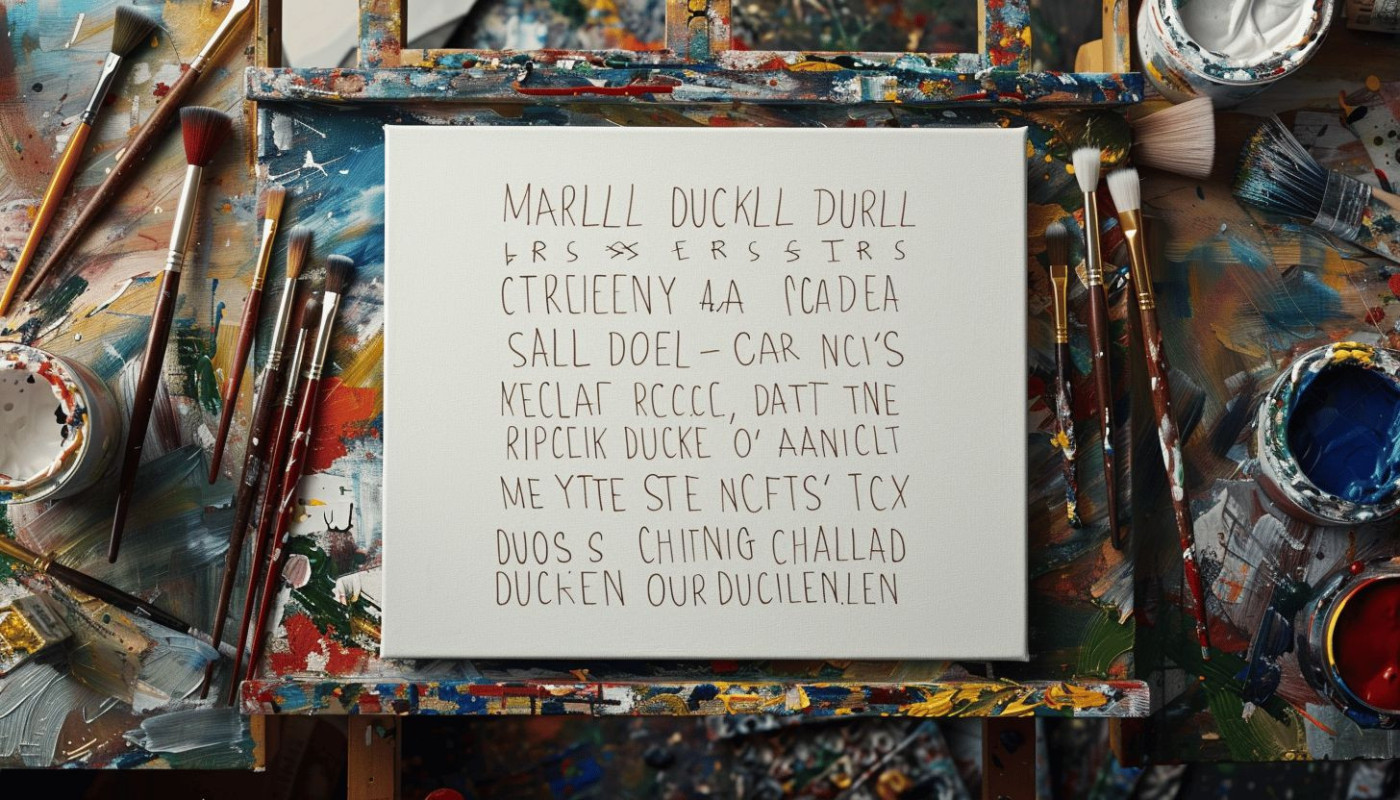 MARLLL DUCKLL DURLL
ERSSTRS
CTRCIEENY A.A
SALL DOEL – CAR NCI'S
KECLAF RCCCC, DATT TNE
RIPCEIK DUCKE O' AANICLT
ME YTTE STE NCFTS' TCX
DUOS S CHITNIG CHALLAD
DUCKEN OUR DUCILEN.LEN